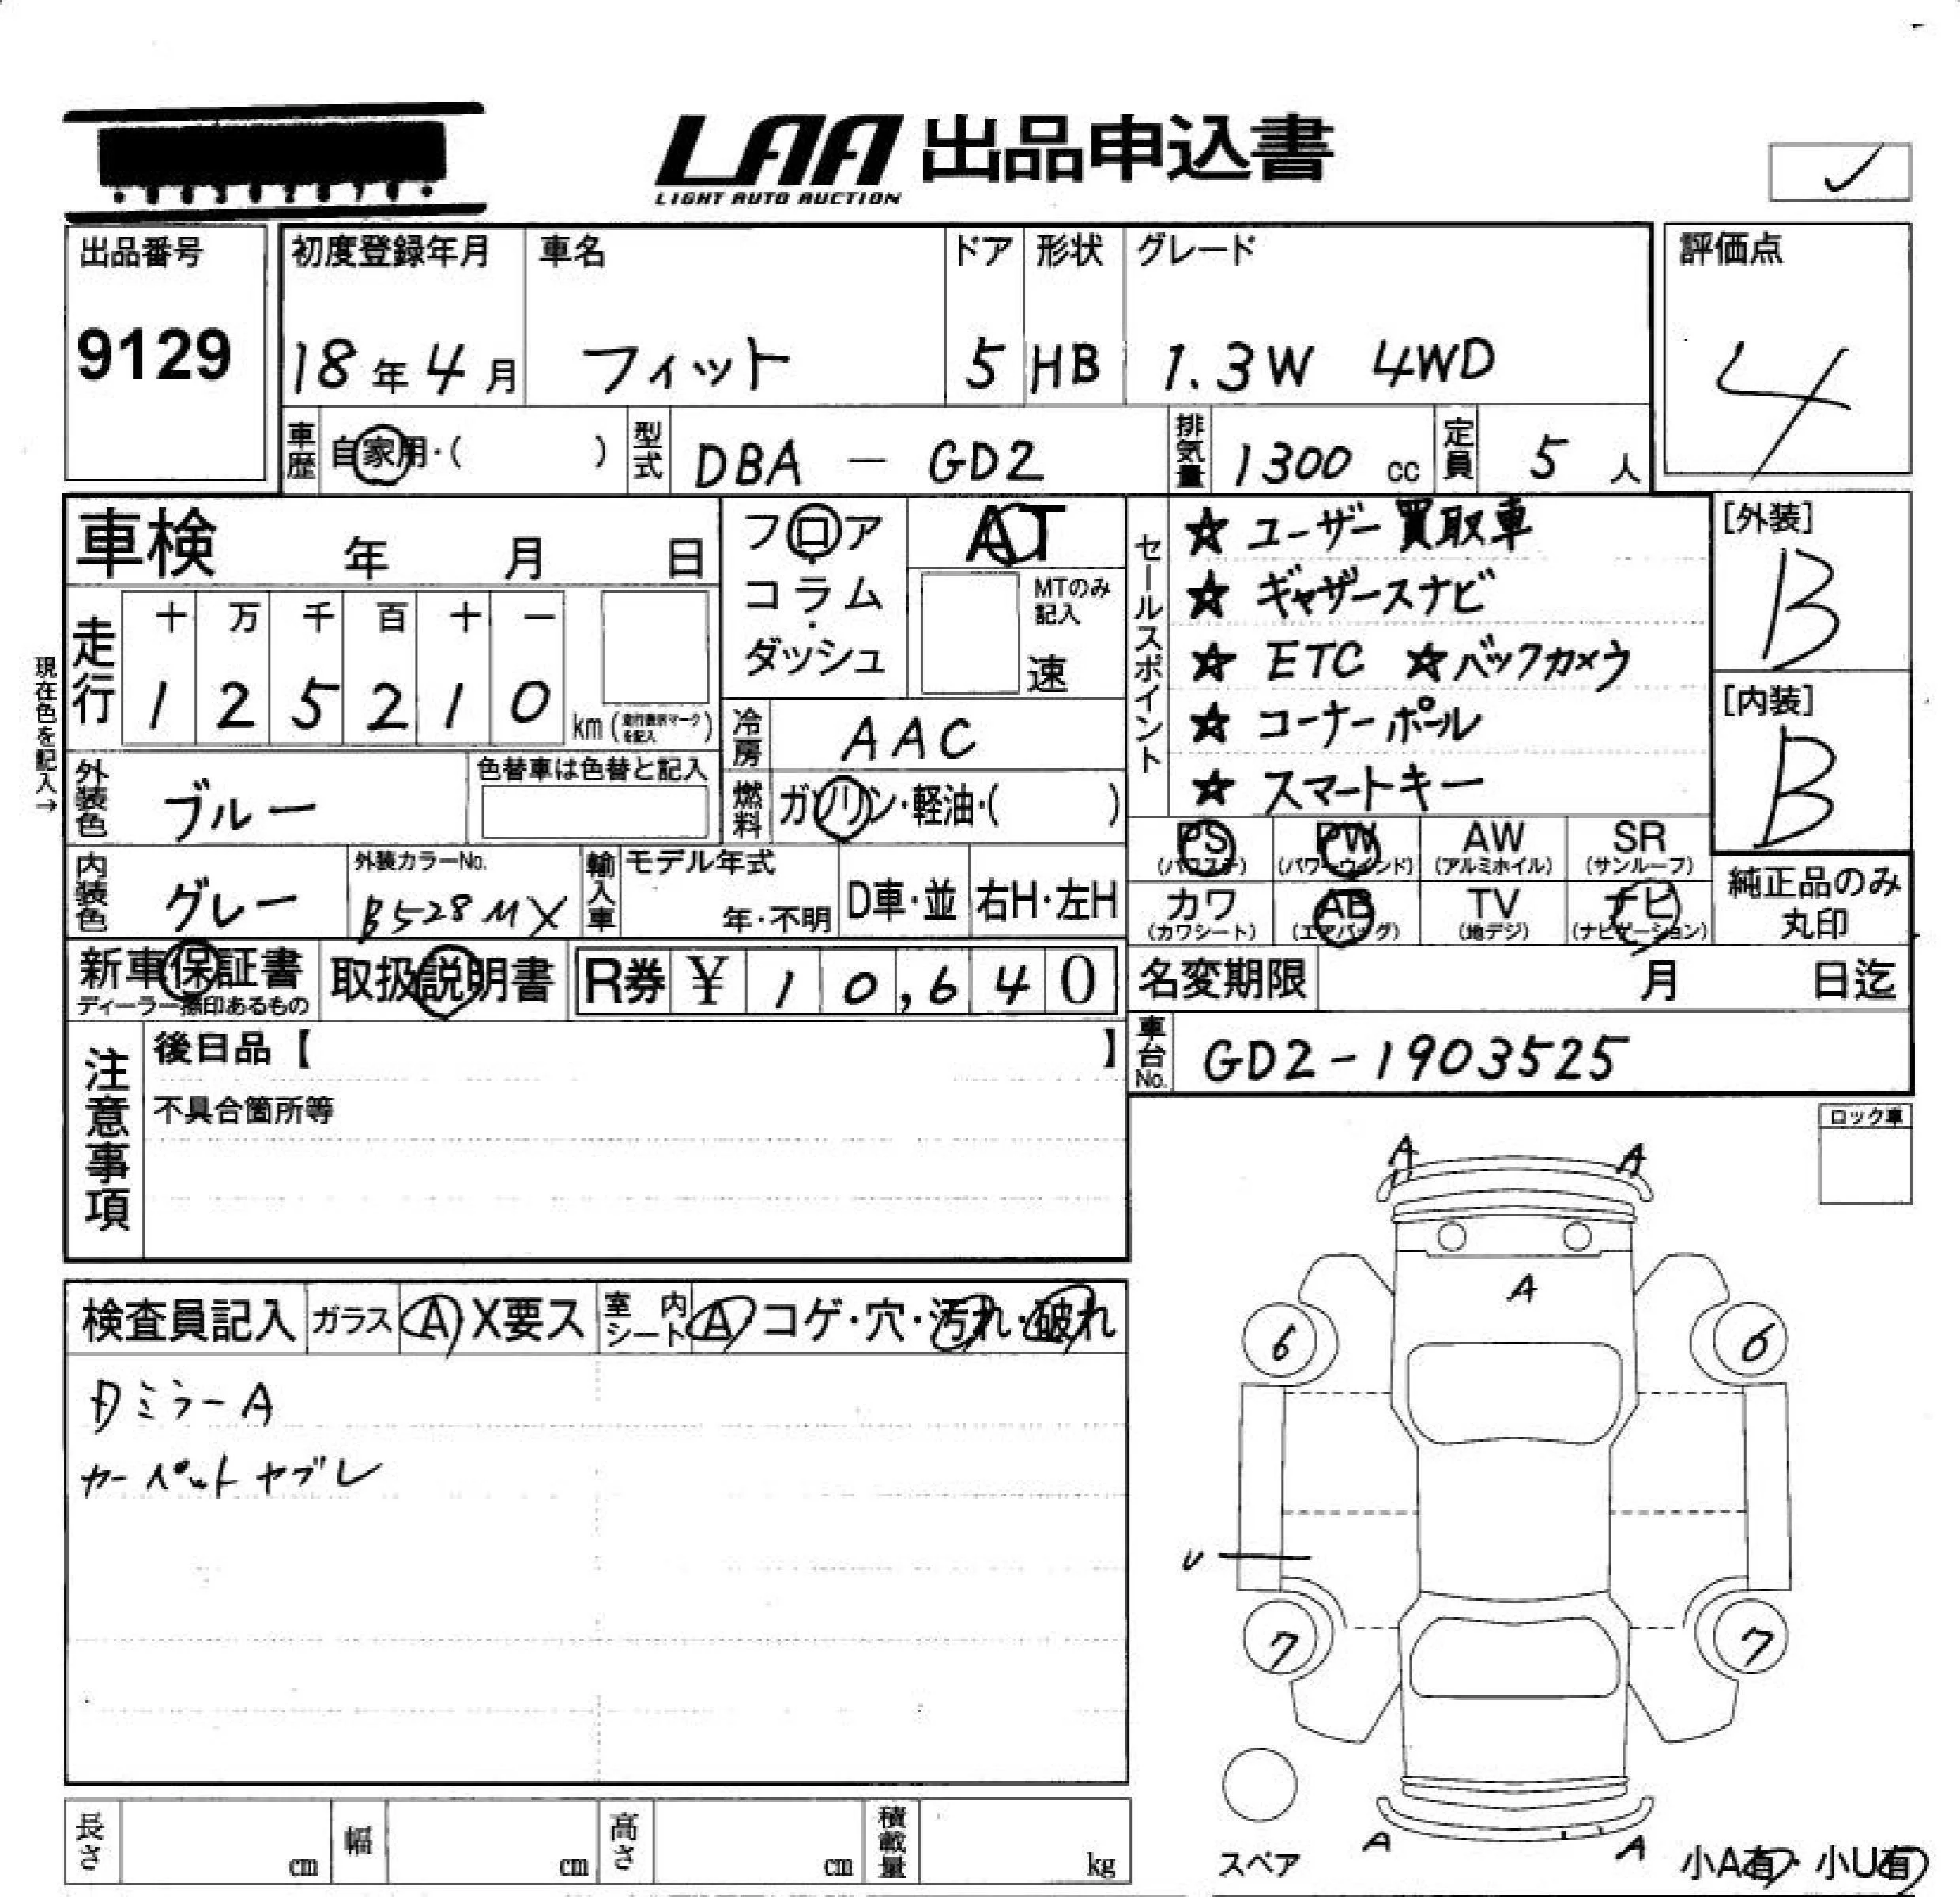 LAA 出品申込書
LIGHT AUTO AUCTION
出品番号
9129
初度登録年月
18年4月
車名
フィット
ドア
5
形状
HB
グレード
1.3W 4WD
評価点
4
車歴
自家用・( )
型式
DBA - GD2
排気量
1300 cc
定員
5 人
車検 年 月 日
フロア
コラム
・
ダッシュ
AT
MTのみ
記入
速
セールスポイント
☆ ユーザー買取車
☆ ギャザースナビ
☆ ETC ☆ バックカメラ
☆ コーナーポール
☆ スマートキー
[外装]
B
[内装]
B
現在色を記入→
走行
十 万 千 百 十 一
1 2 5 2 1 0
km (走行表示マークを記入)
冷房
AAC
外装色
ブルー
色替車は色替と記入
燃料
ガソリン・軽油・( )
PS
(パワステ)
PW
(パワーウィンド)
AW
(アルミホイル)
SR
(サンルーフ)
内装色
グレー
外装カラーNo.
B528MX
輸入車
モデル年式
年・不明
D車・並
右H・左H
カワ
(カワシート)
AB
(エアバッグ)
TV
(地デジ)
ナビ
(ナビゲーション)
純正品のみ
丸印
新車保証書
ディーラー標印あるもの
取扱説明書
R券 ¥ 10,640
名変期限 月 日迄
注意事項
後日品【 】
不具合箇所等
車台No.
GD2-1903525
ロック車
検査員記入
ガラス
A X要ス
室内シート
A コゲ・穴・汚れ・破れ
ミラーA
カーペットヤブレ
A A
A
6 6
U
7 7
A A
スペア
小A有・小U有
長さ cm
幅 cm
高さ cm
積載量 kg